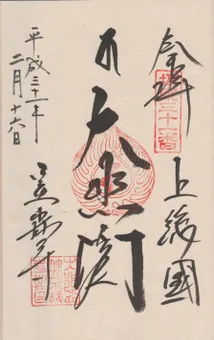 奉拝
坂東三十一番
上総國
大悲閣
平成三十一年
二月十六日
笠森寺